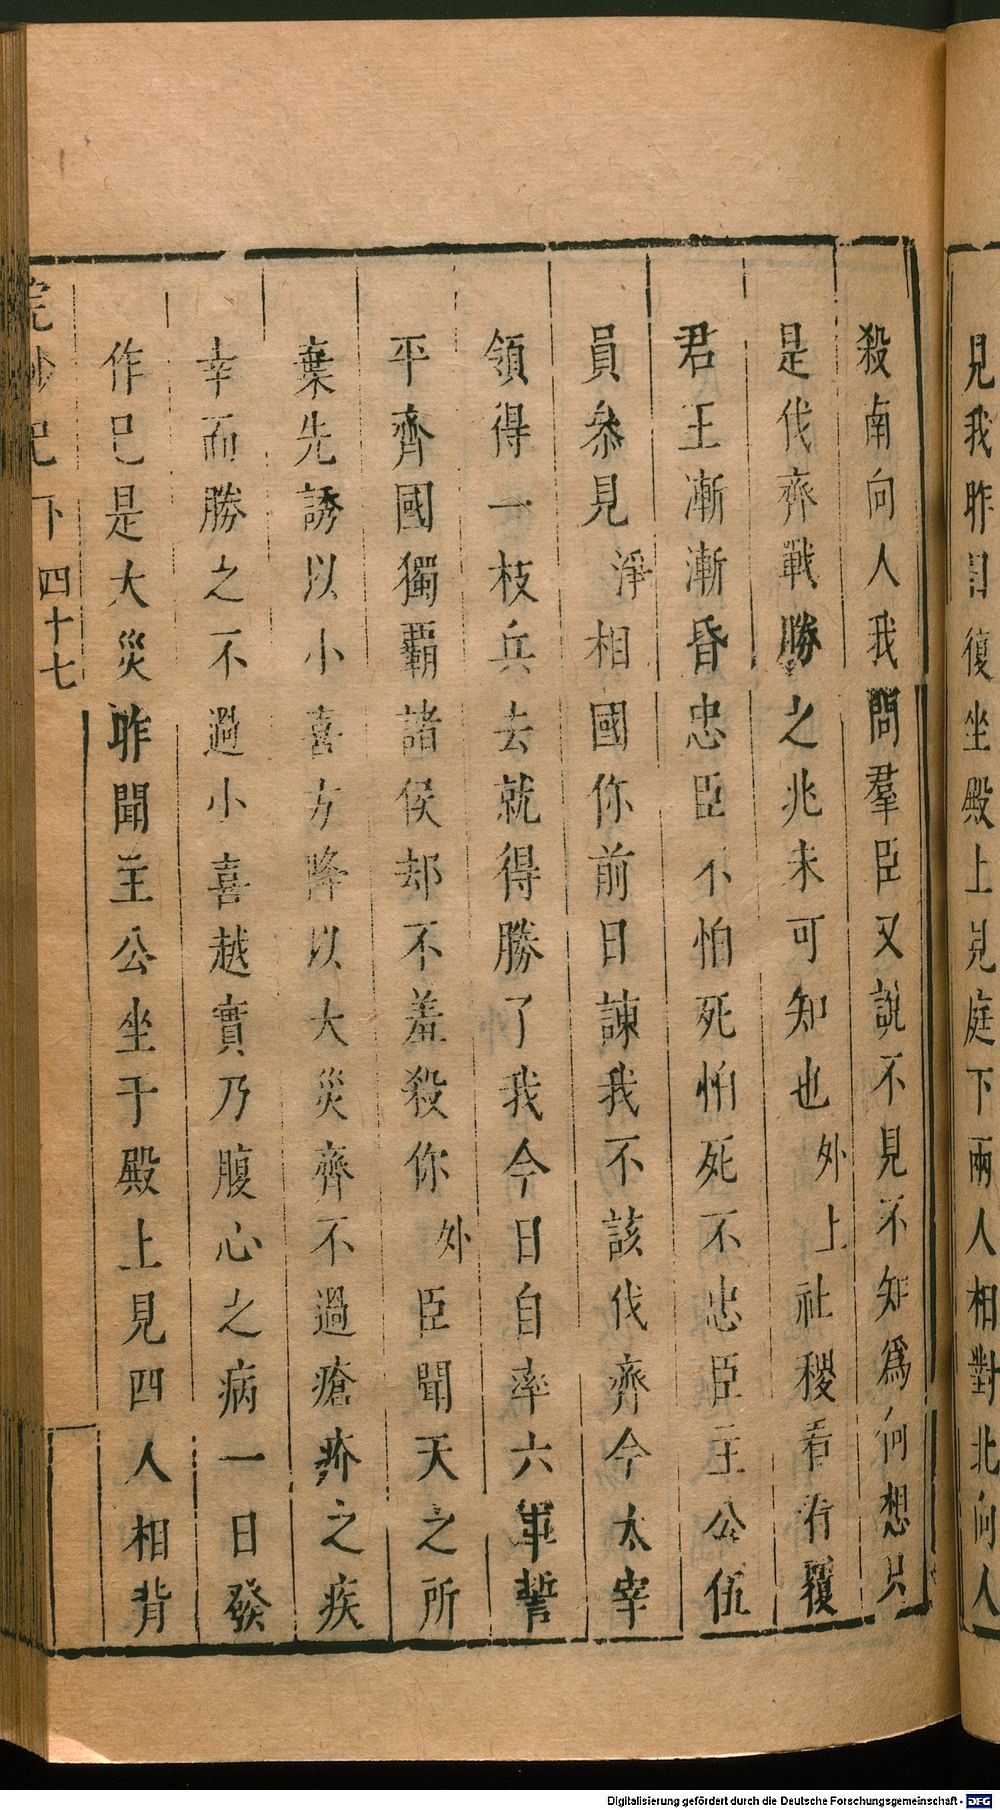 見我昨日復坐殿上見庭下兩人相對北向人
殺南向人我問羣臣又說不見不知爲何想只
是伐齊戰勝之兆未可知也外上社稷看有覆
君王漸漸昏忠臣不怕死怕死不忠臣主公伍
員叅見淨相國你前日諫我不該伐齊今太宰
領得一枝兵去就得勝了我今日自率六軍誓
平齊國獨覇諸侯却不羞殺你外臣聞天之所
棄先誘以小喜方降以大災齊不過瘡疥之疾
幸而勝之不過小喜越實乃腹心之病一日發
作已是大災昨聞主公坐于殿上見四人相背
浣紗記下 四十七
Digitalisierung gefördert durch die Deutsche Forschungsgemeinschaft - DFG